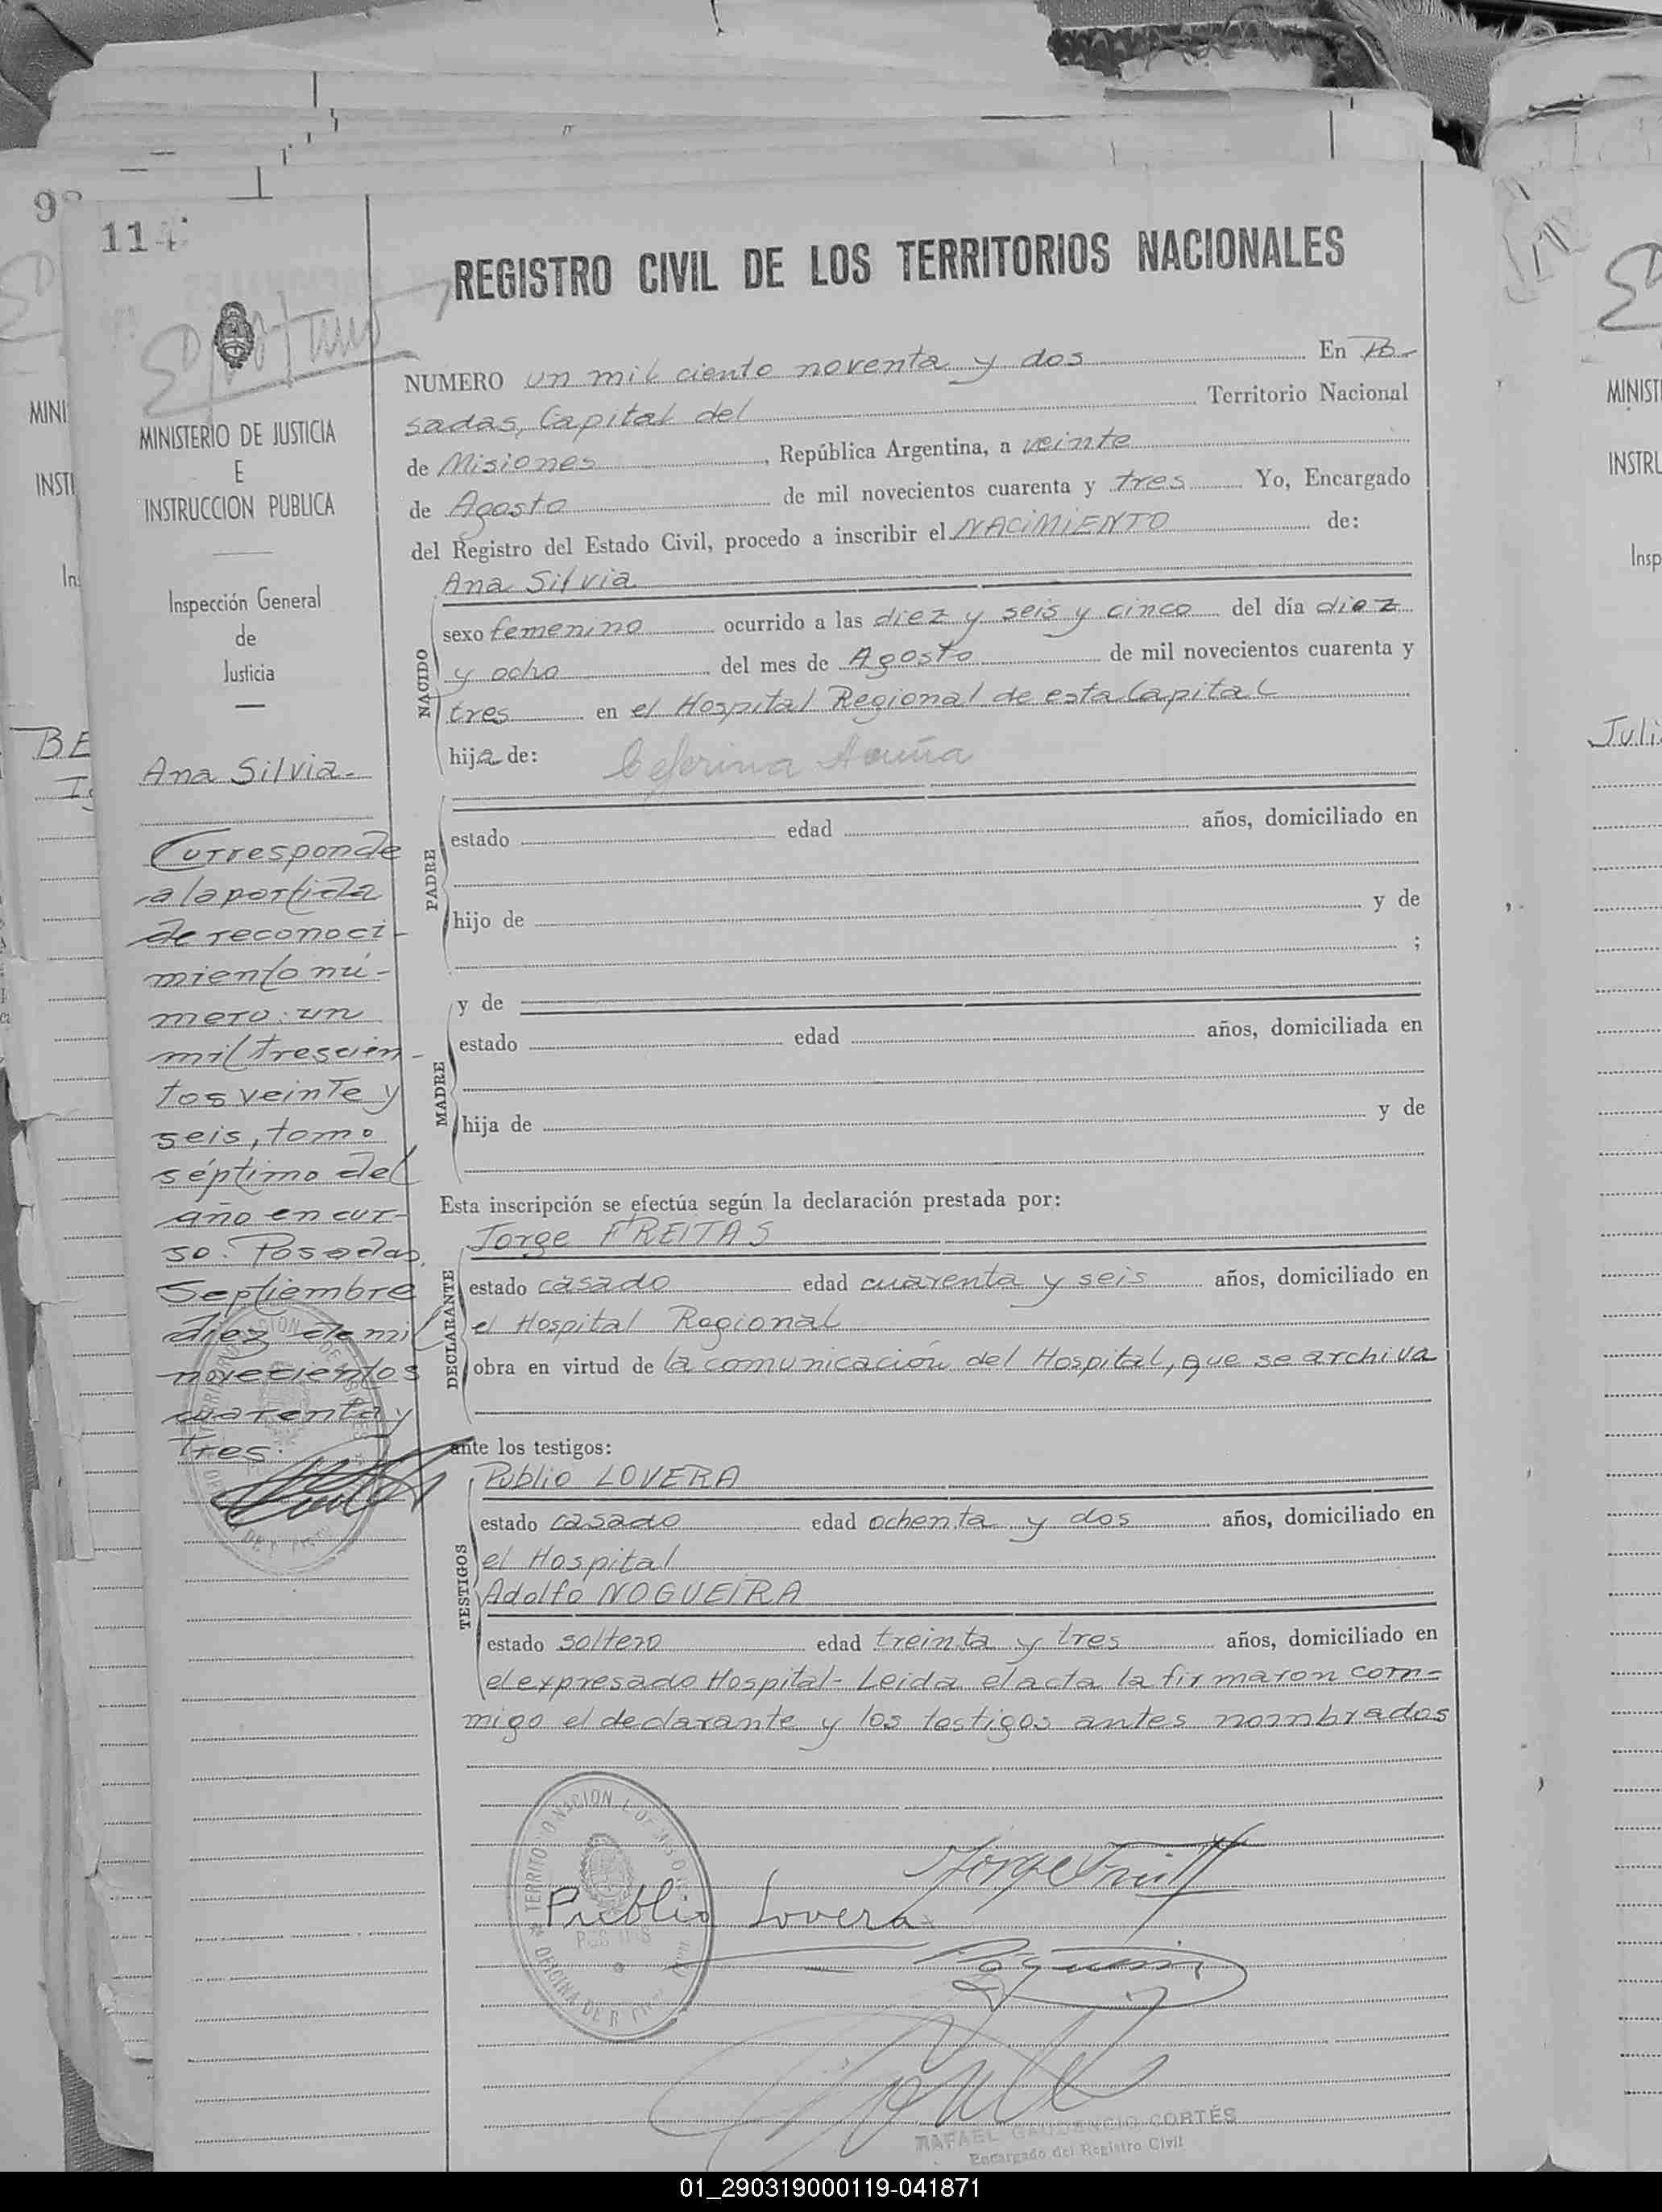 114
REGISTRO CIVIL DE LOS TERRITORIOS NACIONALES
MINISTERIO DE JUSTICIA
E
INSTRUCCION PUBLICA
Inspección General
de
Justicia
Ana Silvia.
Corresponde
a la partida
de reconoci-
miento nú-
mero: un
mil trescien-
tos veinte y
seis, tomo
séptimo del
año en cur-
so. Posadas,
Septiembre
diez de mil
novecientos
cuarenta y
tres.
NUMERO un mil ciento noventa y dos En Po-
sadas, Capital del Territorio Nacional
de Misiones, República Argentina, a veinte
de Agosto de mil novecientos cuarenta y tres Yo, Encargado
del Registro del Estado Civil, procedo a inscribir el NACIMIENTO de:
NACIDO
Ana Silvia
sexo femenino ocurrido a las diez y seis y cinco del día diez
y ocho del mes de Agosto de mil novecientos cuarenta y
tres en el Hospital Regional de esta Capital
hija de: Ceferina Acuña
PADRE
estado edad años, domiciliado en
hijo de y de
;
MADRE
y de
estado edad años, domiciliada en
hija de y de
Esta inscripción se efectúa según la declaración prestada por:
DECLARANTE
Jorge FREITAS
estado casado edad cuarenta y seis años, domiciliado en
el Hospital Regional
obra en virtud de la comunicación del Hospital, que se archiva
ante los testigos:
TESTIGOS
Publio LOVERA
estado casado edad ochenta y dos años, domiciliado en
el Hospital
Adolfo NOGUEIRA
estado soltero edad treinta y tres años, domiciliado en
el expresado Hospital- Leida el acta la firmaron con-
migo el declarante y los testigos antes nombrados
Publio Lovera
RAFAEL GAUDENCIO CORTÉS
Encargado del Registro Civil
MINI
INSTI
BE
MINIST
INSTRU
Insp
Juli
01_290319000119-041871